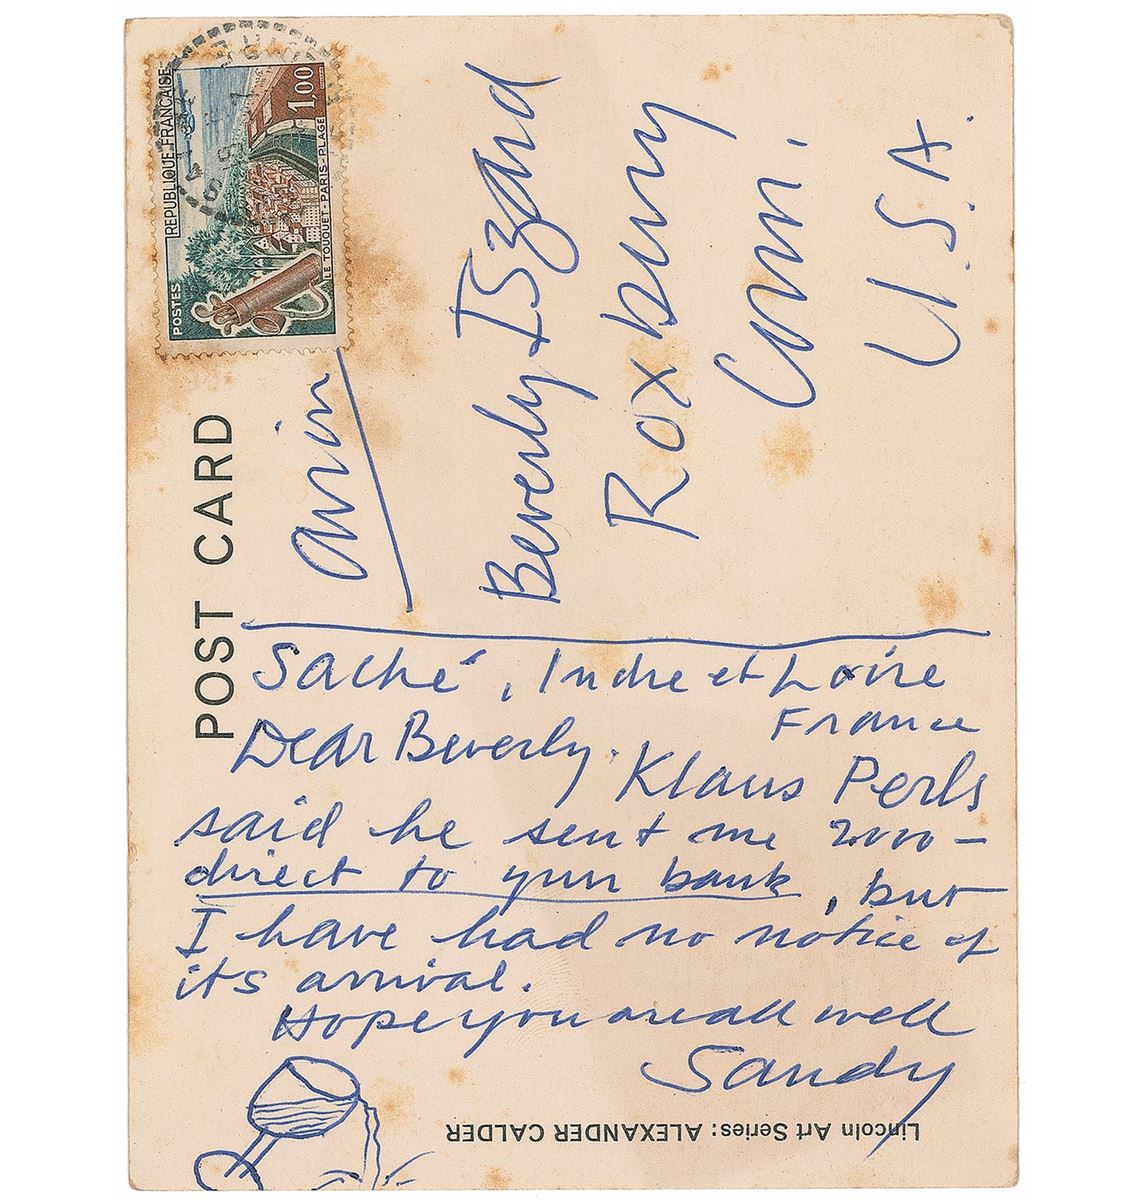 REPUBLIQUE FRANCAISE
1,00
POSTES
LE TOUQUET-PARIS-PLAGE
POST CARD
avion
Beverly ISzard
Roxbury
Conn.
U.S.A.
Saché, Indre et Loire
France
Dear Beverly. Klaus Perls
said he sent me 2000—
direct to your bank, but
I have had no notice of
its arrival.
Hope you are all well
Sandy
Lincoln Art Series: ALEXANDER CALDER